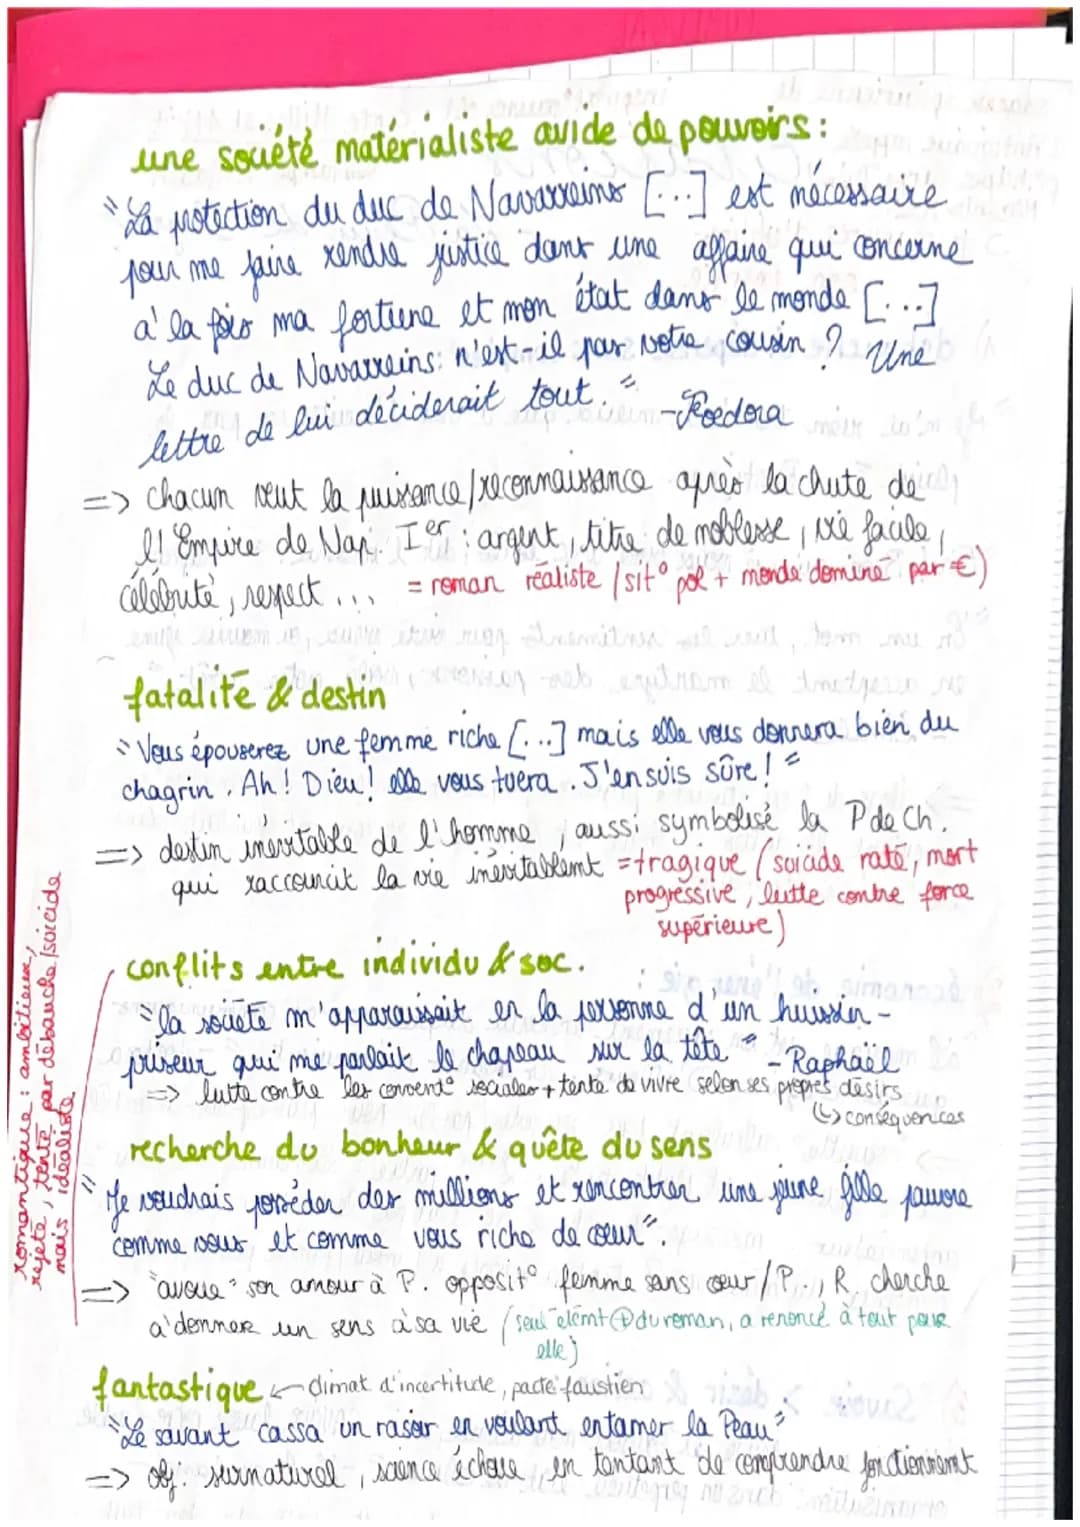 une société matérialiste avide de pouvoirs :
"La protection du duc de Navarreins [...] est nécessaire
pour me faire rendre justice dans une affaire qui concerne
à la fois ma fortune et mon état dans le monde [...]
Le duc de Navarreins: n'est-il pas votre cousin ? Une
lettre de lui déciderait tout." - Foedora
=> chacun veut la puissance/reconnaissance après la chute de
l'Empire de Nap. Ier : argent, titre de noblesse, vie facile,
célébrité, respect ... = roman réaliste (sit° pol + monde dominé par €)
fatalité & destin
"Vous épouserez une femme riche [...] mais elle vous donnera bien du
chagrin. Ah ! Dieu ! elle vous tuera. J'en suis sûre !"
=> destin inévitable de l'homme, aussi symbolisé la P de Ch.
qui raccourcit la vie inévitablemt = tragique (suicide raté, mort
progressive, lutte contre force
supérieure)
conflits entre individu & soc.
"la société m'apparaissait en la personne d'un huissier-
priseur qui me parlait le chapeau sur la tête" - Raphaël
=> lutte contre les convent° sociales + tente de vivre selon ses propres désirs
(↳ conséquences
recherche du bonheur & quête du sens
"Je voudrais posséder des millions et rencontrer une jeune fille pauvre
comme vous et comme vous riche de cœur".
=> "avoue" son amour à P. opposit° femme sans cœur/P., R. cherche
à donner un sens à sa vie (seul élémt ⊕ du roman, a renoncé à tout pour
elle)
fantastique ← climat d'incertitude, pacte faustien
"Le savant cassa un rasoir en voulant entamer la Peau"
=> obj. surnaturel, science échoue en tentant de comprendre fonctionnemt
romantique : ambitieux,
rejeté, tenté par débauche/suicide
mais idéaliste